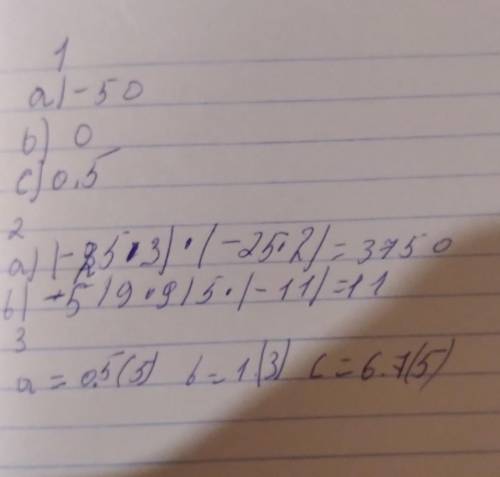 1
a) -50
b) 0
c) 0.5
2
a) |-25·3|·|-25·2|=3750
b) +5/9·9/5·|-11|=11
3
a=0.5(5) b=1.(3) c=6.7(5)